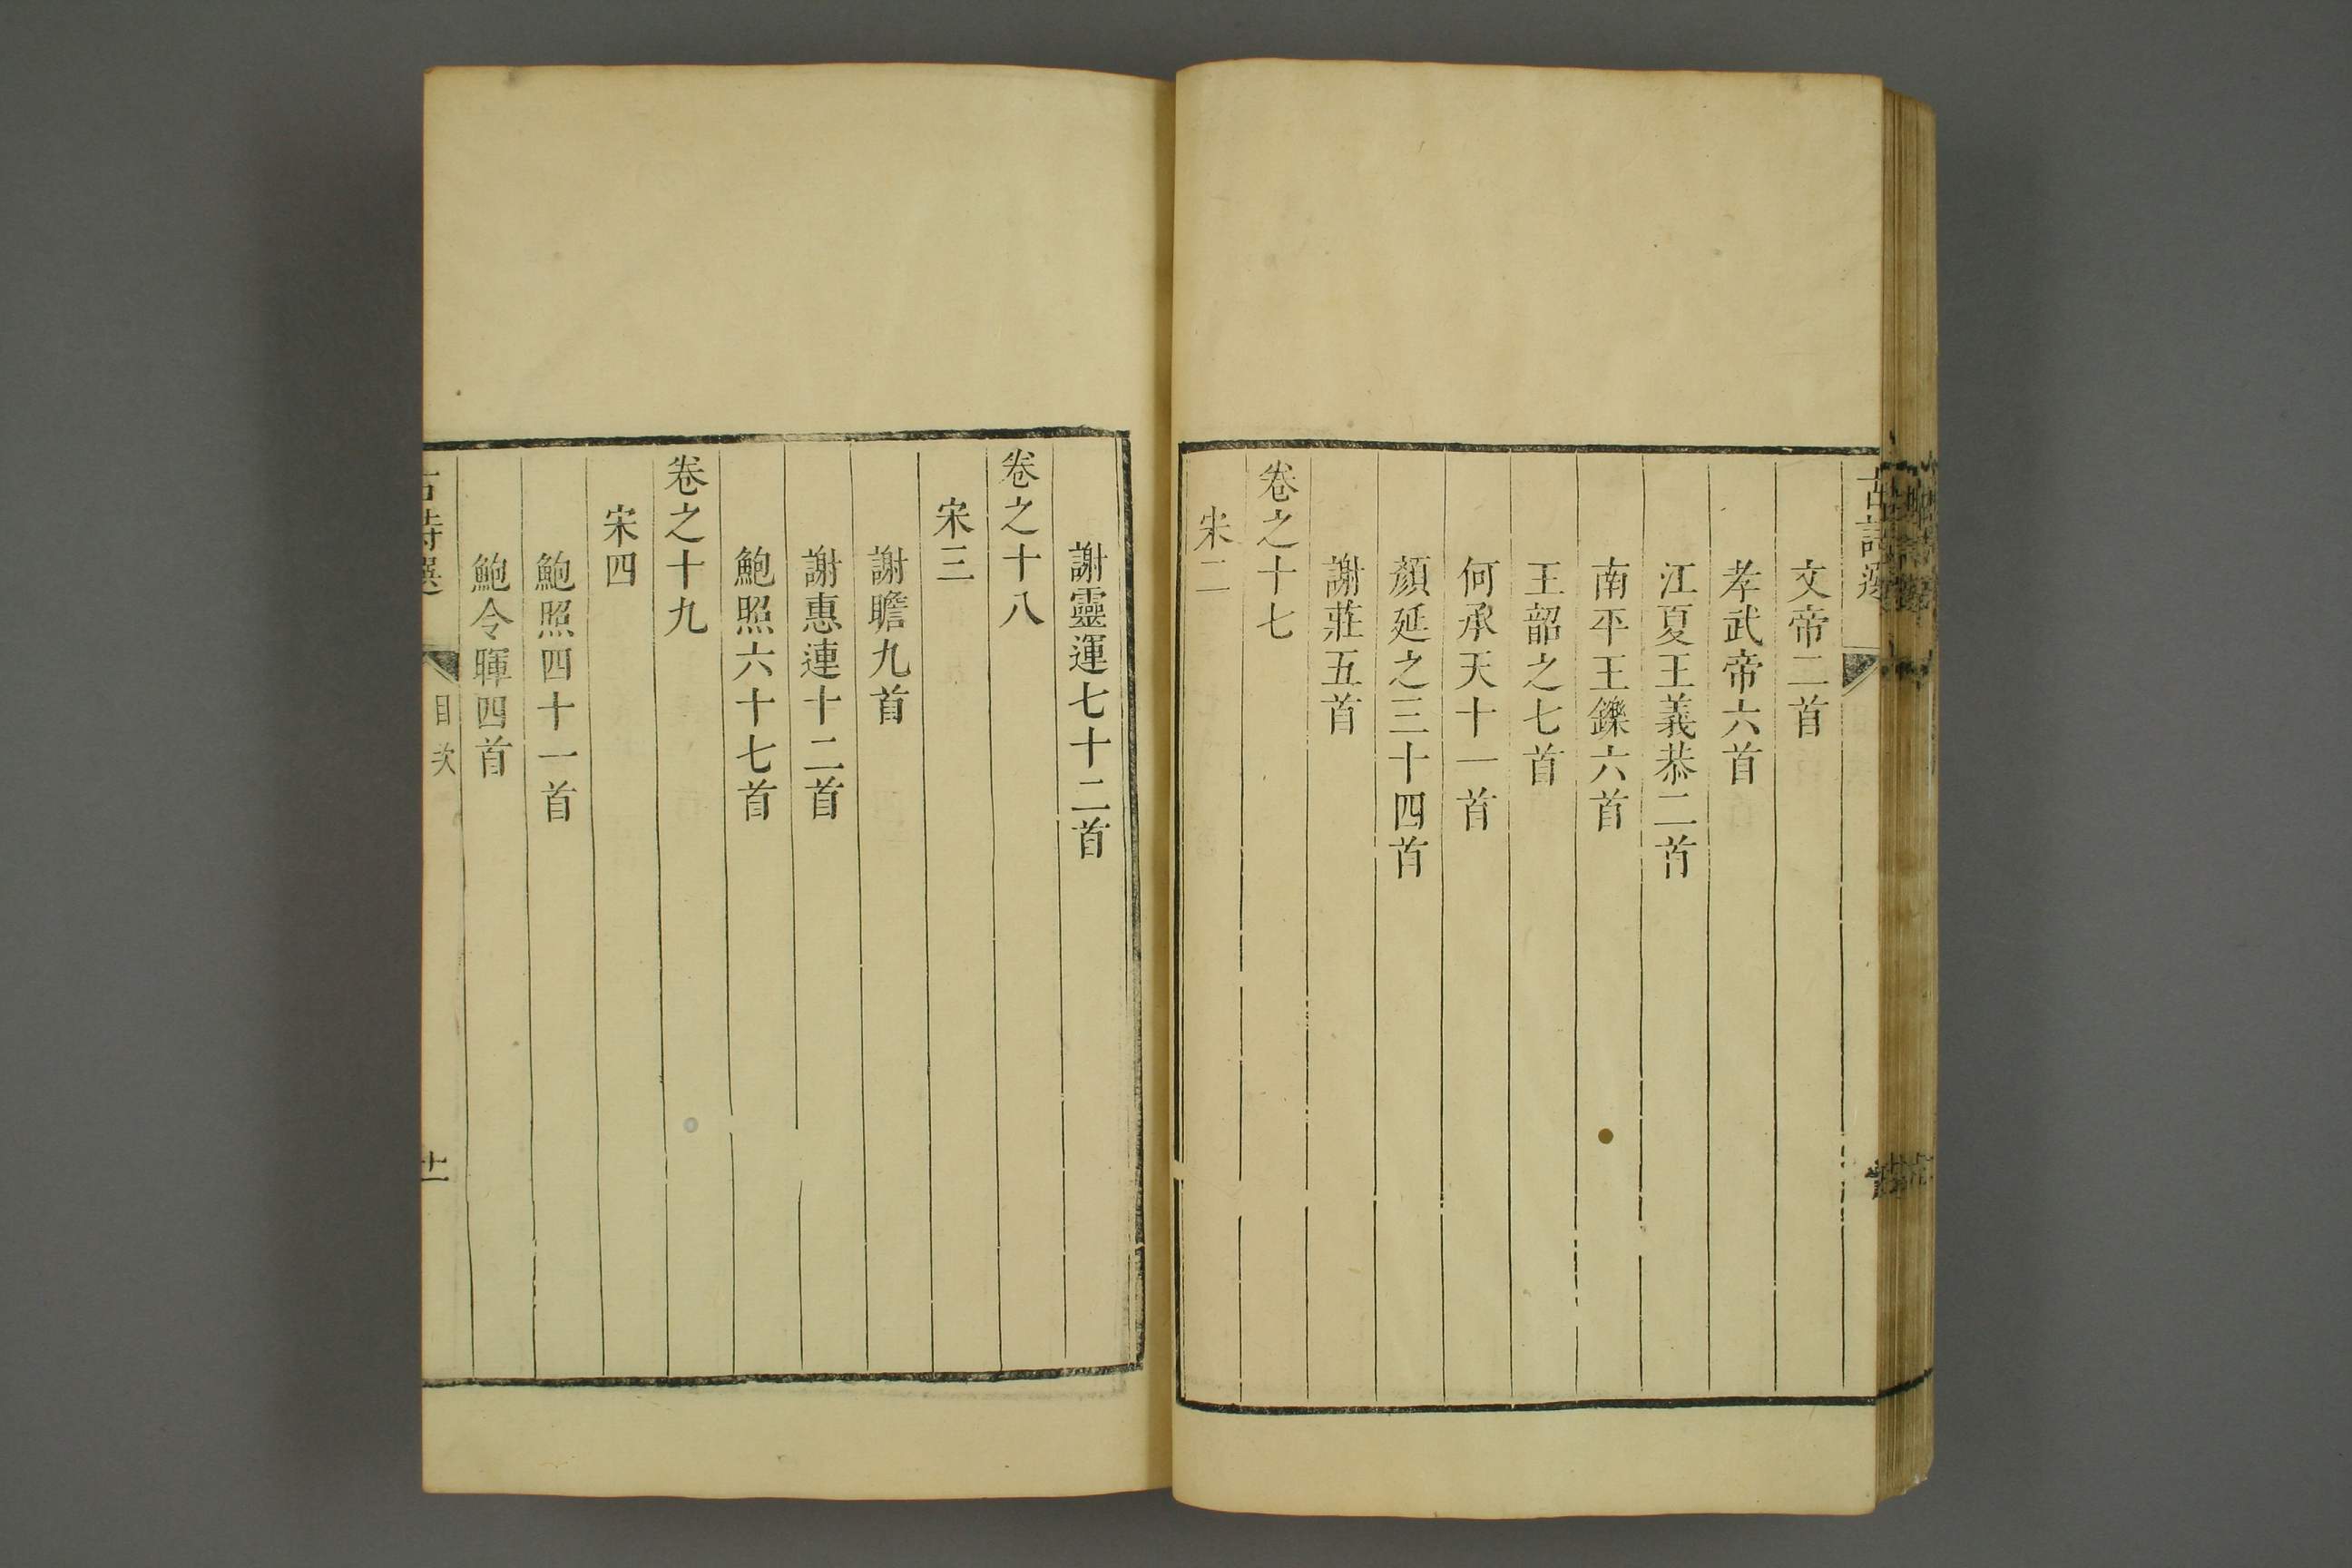 古詩選
文帝二首
孝武帝六首
江夏王義恭二首
南平王鑠六首
王韶之七首
何承天十一首
顏延之三十四首
謝莊五首
卷之十七
宋二
謝靈運七十二首
卷之十八
宋三
謝瞻九首
謝惠連十二首
鮑照六十七首
卷之十九
宋四
鮑照四十一首
鮑令暉四首
古詩選
目次
十一